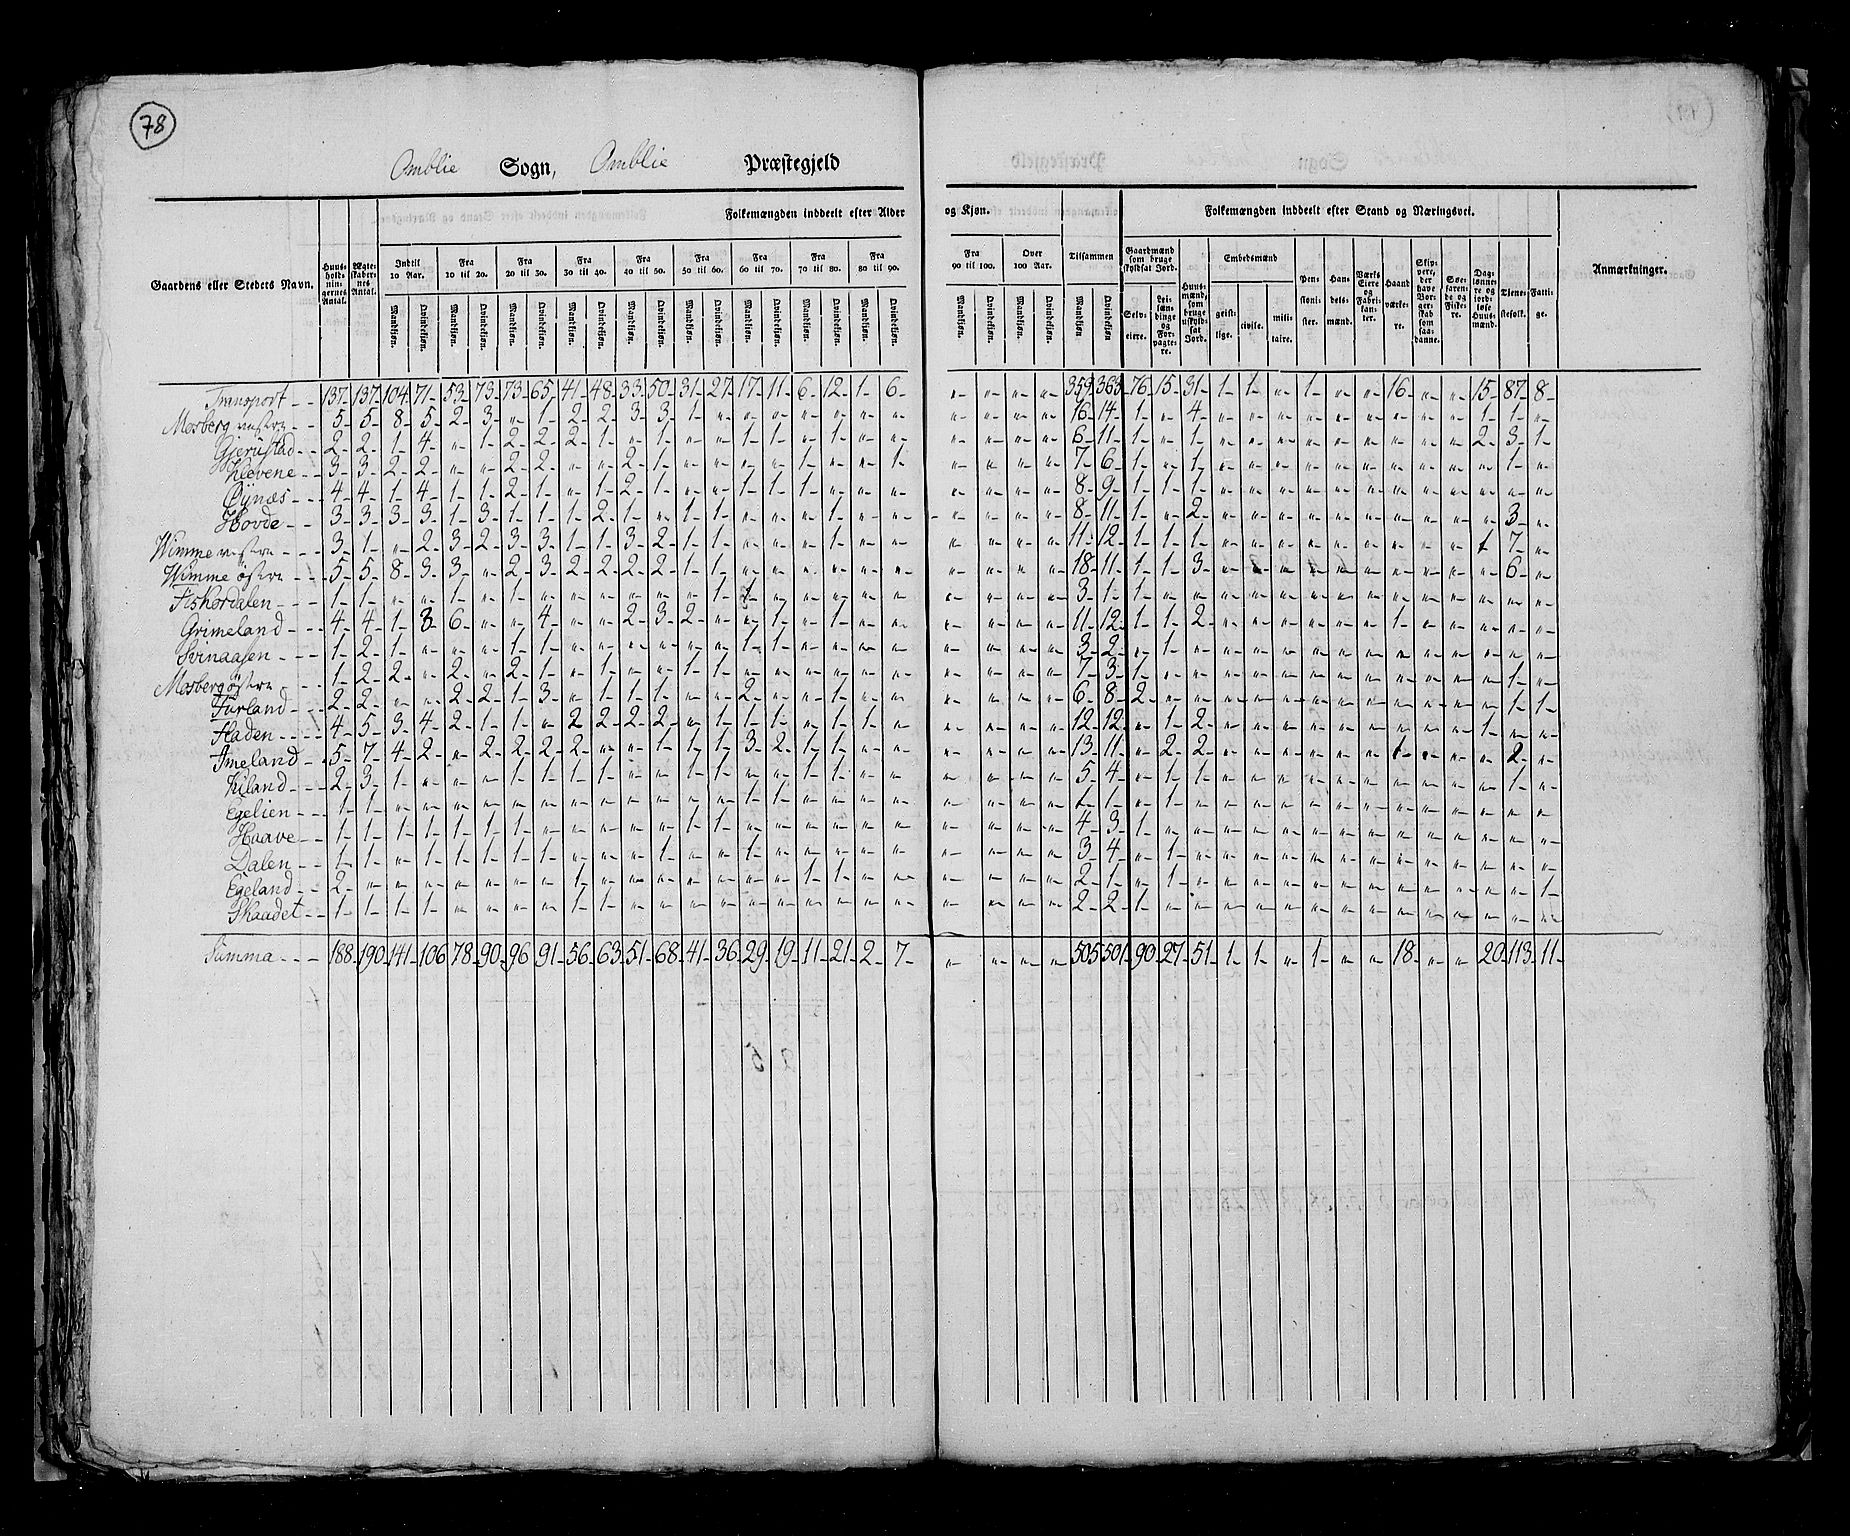 78
Omblie Sogn, Omblie Præstegjeld
Folkemængden inddeelt efter Alder og Kjøn. Folkemængden inddeelt efter Stand og Næringsvei.
Gaardens eller Stedets Navn. Huusholdningernes Antal. Ægteskabernes Antal. Indtil 10 Aar. Fra 10 til 20. Fra 20 til 30. Fra 30 til 40. Fra 40 til 50. Fra 50 til 60. Fra 60 til 70. Fra 70 til 80. Fra 80 til 90. Fra 90 til 100. Over 100 Aar. Tilsammen Gaardmænd som bruge skyldsat Jord. Huusmænd, som bruge uskyldsat Jord. Embedsmænd Pensionister. Handelsmænd. Værks Eiere og Fabrikanter. Haandværkere. Skippere, der have Borgerskab som saadanne. Søefarende og Fiskere. Dagslønnere og jordløse Huusmænd. Tjenestefolk. Fattige. Anmærkninger.
Mandkjøn. Qvindekjøn. Mandkjøn. Qvindekjøn. Mandkjøn. Qvindekjøn. Mandkjøn. Qvindekjøn. Mandkjøn. Qvindekjøn. Mandkjøn. Qvindekjøn. Mandkjøn. Qvindekjøn. Mandkjøn. Qvindekjøn. Mandkjøn. Qvindekjøn. Mandkjøn. Qvindekjøn. Mandkjøn. Qvindekjøn. Mandkjøn Qvindekjøn Selveiere. Leilændinge og Forpagtere. geistlige. civile. militaire.
Transport 137 137 104 71 53 73 73 65 41 48 33 50 31 27 17 11 6 12 1 6 " " " " 359 363 76 15 31 1 1 " 1 " " 16 " " 15 87 8
Mosberg vestre 5 5 8 5 2 3 " 1 2 2 3 3 1 " " " " " " " " " " " 16 14 1 " 4 " " " " " " " " " 1 1 "
Gjerustad 2 2 1 4 " 1 2 2 2 1 " 1 " " 1 1 " 1 " " " " " " 6 11 1 " 1 " " " " " " " " " 2 3 1
Klevene 3 3 2 2 " " 2 2 " " 2 1 " " " " 1 " " 1 " " " " 7 6 1 " 1 " " " " " " " " " " 1 "
Øynæs 4 4 1 4 1 1 2 1 " 1 2 1 " " 1 1 1 " " " " " " " 8 9 1 1 1 " " " " " " " " " " " "
Hovde 3 3 3 3 1 3 1 1 1 2 1 " 1 1 " " " 1 " " " " " " 8 11 1 " 2 " " " " " " " " " " 3 "
Wimme vestre 3 1 " 2 3 2 3 3 1 1 3 2 1 1 " " " 1 " " " " " " 11 12 1 1 1 " " " " " " " " " 1 7 "
Wimme østre 5 5 8 3 3 " 2 3 2 2 2 2 1 1 " " " " " " " " " " 18 11 1 1 3 " " " " " " " " " " 6 "
Fiskerdalen 1 1 " " 1 " 1 " " " " " " 1 1 " " " " " " " " " 3 1 1 " " " " " " " " " " " " " "
Grimeland 4 4 1 3 6 " " 4 " " 2 3 2 " " 1 " 1 " " " " " " 11 12 1 1 2 " " " " " " 1 " " " " "
Svinaasen 1 2 1 " " " 1 1 " " " " " " 1 1 " " " " " " " " 3 2 " 1 " " " " " " " " " " " " "
Mosberg østre 1 2 2 " 2 " 2 1 " 1 " " 1 1 " " " " " " " " " " 7 3 1 " " " " " " " " " " " " 1 "
Furland 2 2 " " 2 2 1 3 " 1 1 1 " " 2 " " 1 " " " " " " 6 8 2 " " " " " " " " " " " " 1 1
Haden 4 5 3 4 2 1 1 " 2 2 2 2 " 1 1 1 " 1 1 " " " " " 12 12 " 1 2 " " " " " " " " " 1 " "
Imeland 5 7 4 2 " 2 2 2 2 " " 1 1 1 3 2 1 1 " " " " " " 13 11 " 2 2 " " " " " " 1 " " " 2 "
Kiland 2 3 1 " " " 1 1 1 1 " " 1 1 " " 1 1 " " " " " " 5 4 " 1 1 " " " " " " " " " " 1 "
Egelien 1 1 " " " " " " " " " " " " 1 1 " " " " " " " " 1 1 " 1 " " " " " " " " " " " " "
Haave 1 1 1 1 1 1 1 " " " " " 1 1 " " " " " " " " " " 4 3 1 " " " " " " " " " " " " " "
Dalen 1 1 " 1 1 1 1 1 " " " 1 " " 1 " " " " " " " " " 3 4 " 1 " " " " " " " " " " " " "
Egeland 2 " " " " " " " 1 " " " " " " " 1 1 " " " " " " 2 1 " 1 " " " " " " " " " " " " 1
Skaadet 1 1 1 1 " " " " 1 1 " " " " " " " " " " " " " " 2 2 1 " " " " " " " " " " " " " "
Summa 188 190 141 106 78 90 96 91 56 63 51 68 41 36 29 19 11 21 2 7 " " " " 505 501 90 27 51 1 1 " 1 " " 18 " " 20 113 11